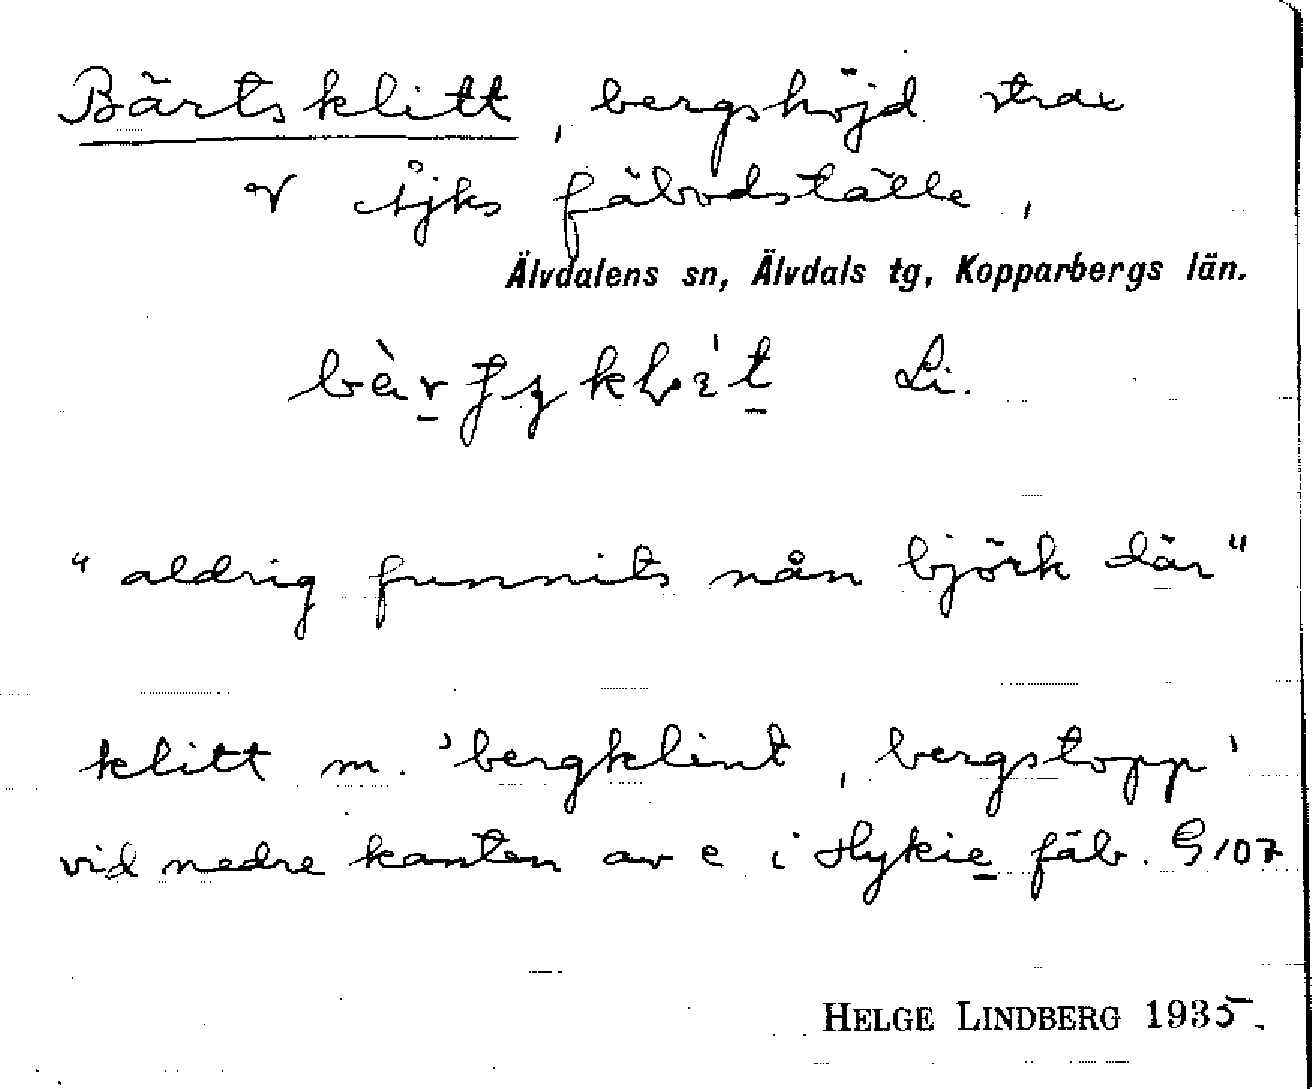 Bärtsklitt, bergshöjd strax
v Åjks fäbodställe,
Älvdalens sn, Älvdals tg, Kopparbergs län.
Li.
"aldrig funnits nån björk där"
klitt m. 'bergklint, bergstopp'
vid nedre kanten av e i Hykie fäb. G 107
HELGE LINDBERG 1935.